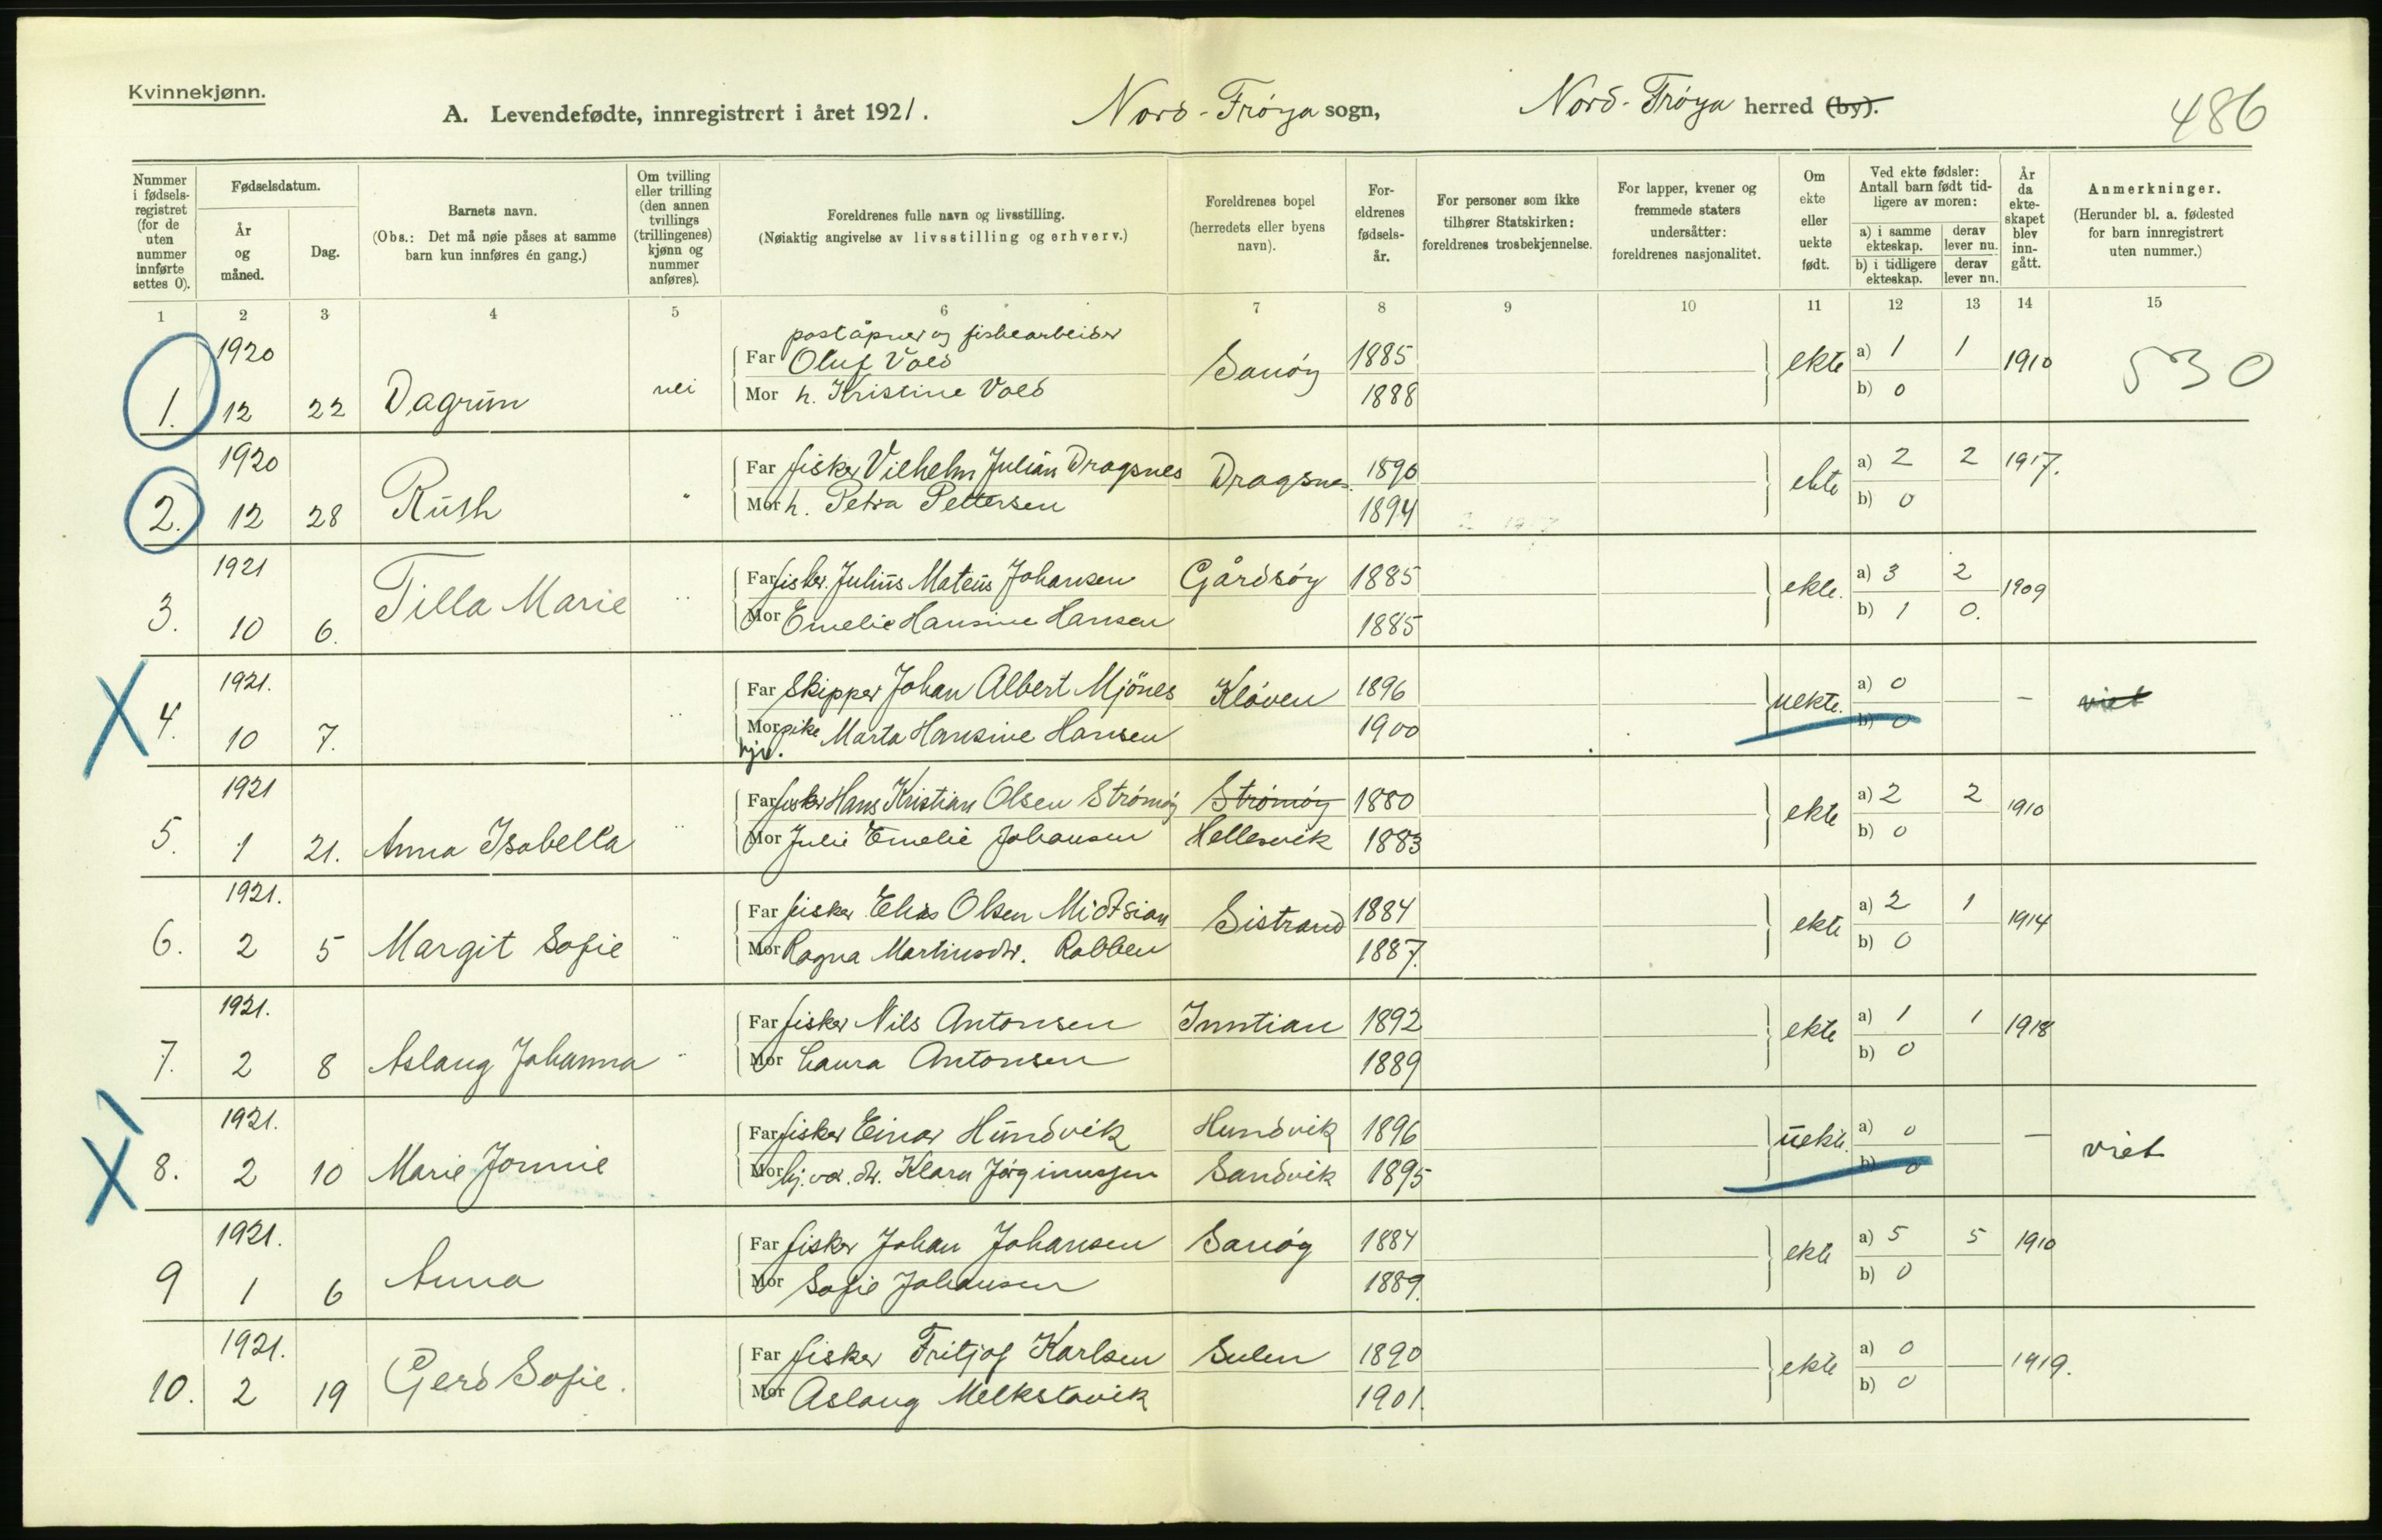 Kvinnekjønn.
A. Levendefødte, innregistrert i året 1921. Nord-Frøya sogn, Nord-Frøya herred (by). 486
Nummer i fødsels-registret (for de uten nummer innførte settes 0).
Fødselsdatum.
År og måned.
Dag.
Barnets navn.
(Obs.: Det må nøie påses at samme barn kun innføres én gang.)
Om tvilling eller trilling (den annen tvillings (trillingenes) kjønn og nummer anføres).
Foreldrenes fulle navn og livsstilling.
(Nøiaktig angivelse av livsstilling og erhverv.)
Foreldrenes bopel (herredets eller byens navn).
For-eldrenes fødsels-år.
For personer som ikke tilhører Statskirken: foreldrenes trosbekjennelse.
For lapper, kvener og fremmede staters undersåtter: foreldrenes nasjonalitet.
Om ekte eller uekte født.
Ved ekte fødsler: Antall barn født tid-ligere av moren:
a) i samme ekteskap. derav lever nu.
b) i tidligere ekteskap. derav lever nn.
År da ekte-skapet blev inn-gått.
Anmerkninger.
(Herunder bl. a. fødested for barn innregistrert uten nummer.)
1 2 3 4 5 6 7 8 9 10 11 12 13 14 15
poståpner og fiskearbeider
1920 Far Oluf Vold Sanøy 1885 ekte a) 1 1 1910 530
1. 12 22 Dagrun nei Mor h. Kristine Vold 1888 b) 0
1920 Far fisker Vilhelm Julian Dragsnes Dragsnes. 1890 ekte a) 2 2 1917.
2. 12 28 Ruth " Mor h. Petra Pettersen 1894 b) 0
1921 Far fisker Julius Mateus Johansen Gårdsøy 1885 ekte. a) 3 2 1909
3. 10 6. Tilla Marie " Mor Emelie Hansine Hansen 1885 b) 1 0.
1921. Far Skipper Johan Albert Mjönes Kløven 1896 uekte. a) 0 – viet
4. 10 7. " Mor pike Marta Hansine Hansen 1900 b) 0
hjv.
1921 Far fisker Hans Kristian Olsen Strömöy Strömöy 1880 ekte a) 2 2 1910
5. 1 21. Anna Isabella " Mor Julie Emelie Johansen Hellesvik 1883 b) 0
1921. Far fisker Elias Olsen Midtsian Sistrand 1884 ekte a) 2 1 1914
6. 2 5 Margit Sofie " Mor Ragna Martinsdtr. Rabben 1887. b) 0
1921. Far fisker Nils Antonsen Inntian 1892 ekte a) 1 1 1918
7. 2 8 Aslaug Johanna " Mor Laura Antonsen 1889 b) 0
1921. Far fisker Einar Hundvik Hundvik 1896 uekte. a) 0 – viet
8. 2 10 Marie Jonnie Mor hj. vær. dtr. Klara Jörginussen Sandvik 1895 b) 0
1921. Far fisker Johan Johansen Sanøy 1884 ekte a) 5 5 1910
9 1 6 Anna Mor Sofie Johansen 1889. b) 0
1921. Far fisker Fritjof Karlsen Sulen 1890 ekte a) 0 1919.
10. 2 19 Gerd Sofie. Mor Aslaug Melkstavik 1901. b) 0